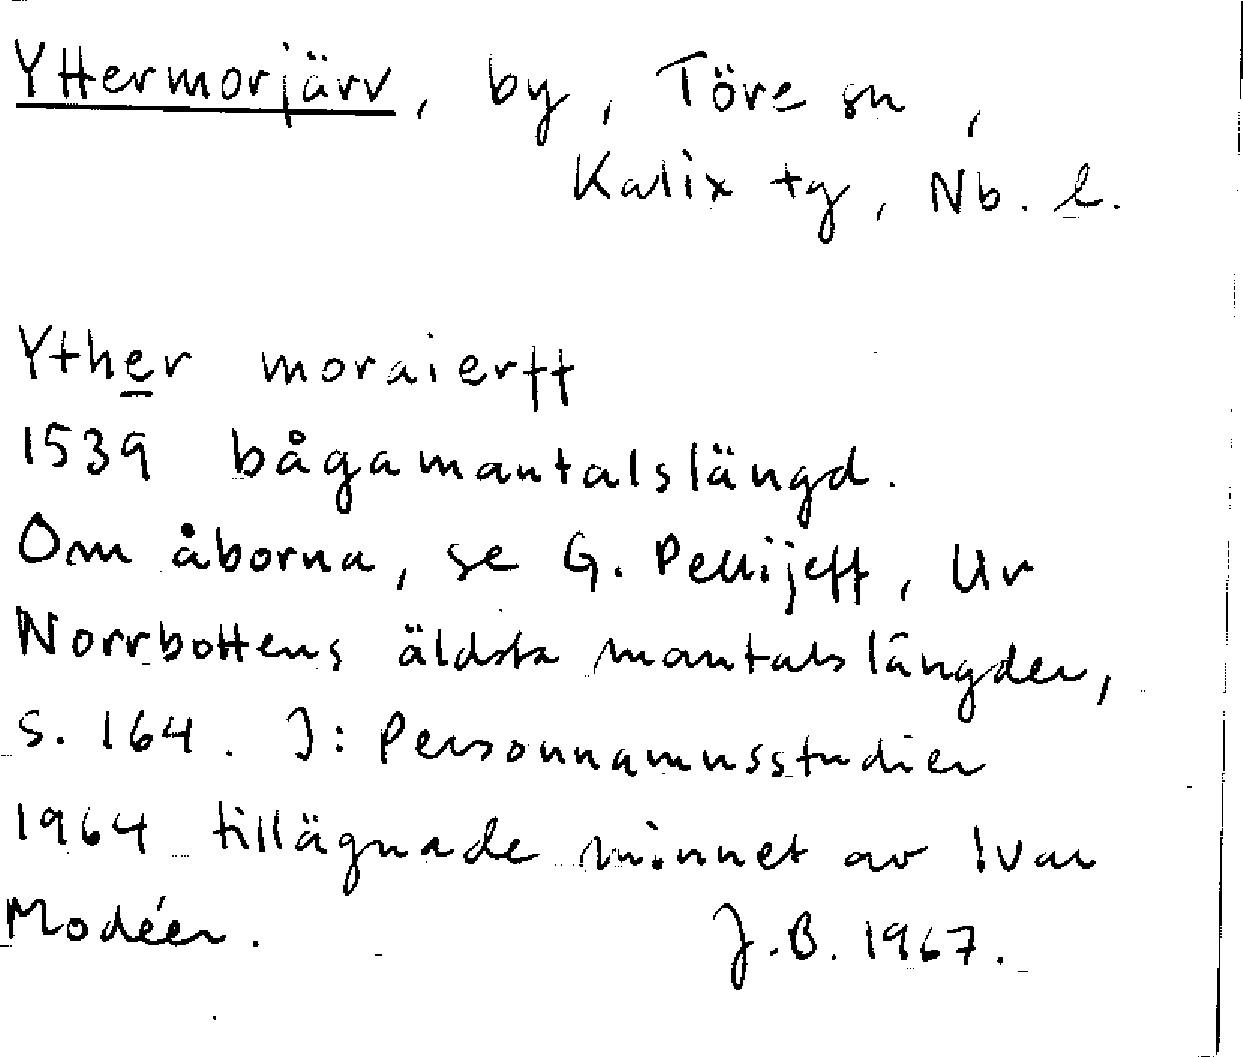 Yttermorjärv, by, Töre sn,
Kalix tg, Nb. l.
Yther moraierff
1539 bågamantalslängd.
Om åborna, se G. Pellijeff, Ur
Norrbottens äldsta mantalslängder,
s. 164. I: Personnamnsstudier
1964 tillägnade minnet av Ivar
Modéer.
J.B. 1967.